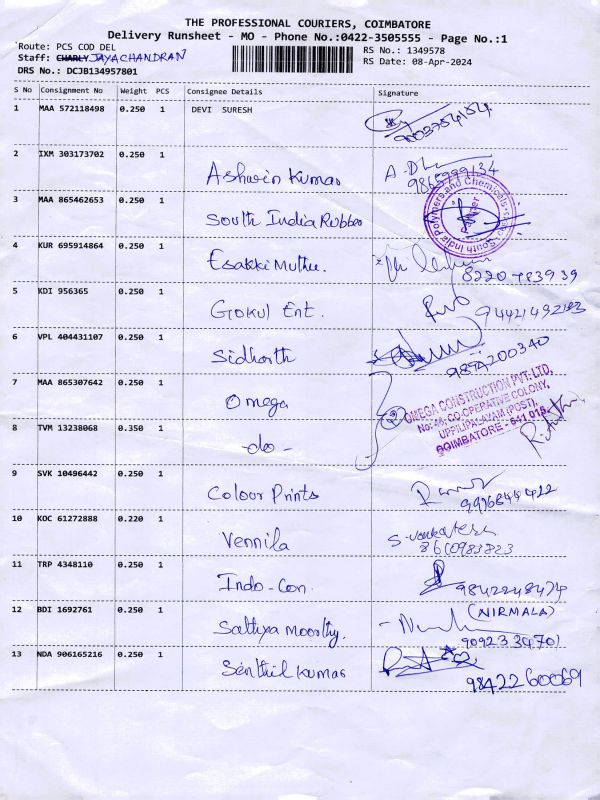 THE PROFESSIONAL COURIERS, COIMBATORE
Delivery Runsheet - MO - Phone No.:0422-3505555 - Page No.:1
Route: PCS COD DEL
RS No.: 1349578
Staff: CHARLY JAYACHANDRAN
RS Date: 08-Apr-2024
DRS No.: DCJB134957801
S No Consignment No Weight PCS Consignee Details Signature
1 MAA 572118498 0.250 1 DEVI SURESH
2 IXM 303173702 0.250 1 Ashwin Kumar
9865999134
3 MAA 865462653 0.250 1 South India Rubber
4 KUR 695914864 0.250 1 Esakki Muthu.
8220783939
5 KDI 956365 0.250 1 Gokul Ent.
94421492183
6 VPL 404431107 0.250 1 Sidharth
9894200340
7 MAA 865307642 0.250 1 Omega
OMEGA CONSTRUCTION PVT. LTD,
No: 46, CO-OPERATIVE COLONY,
UPPILIPALAYAM (POST),
COIMBATORE - 641 015.
8 TVM 13238068 0.350 1 -do-
9 SVK 10496442 0.250 1 Colour Prints
9976844422
10 KOC 61272888 0.220 1 Vennila
S. Venkatesh
8610983823
11 TRP 4348110 0.250 1 Indo-Con.
9842248474
12 BDI 1692761 0.250 1 Sathya Moorthy.
(NIRMALA)
9092334701
13 NDA 906165216 0.250 1 Senthil Kumar
9842260069